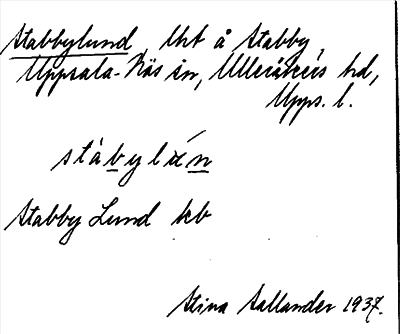 Stabbylund, lht å Stabby,
Uppsala-Näs sn, Ulleråkers hd,
Upps. l.
stàbylún
Stabby Lund kb
Stina Sallander 1937.